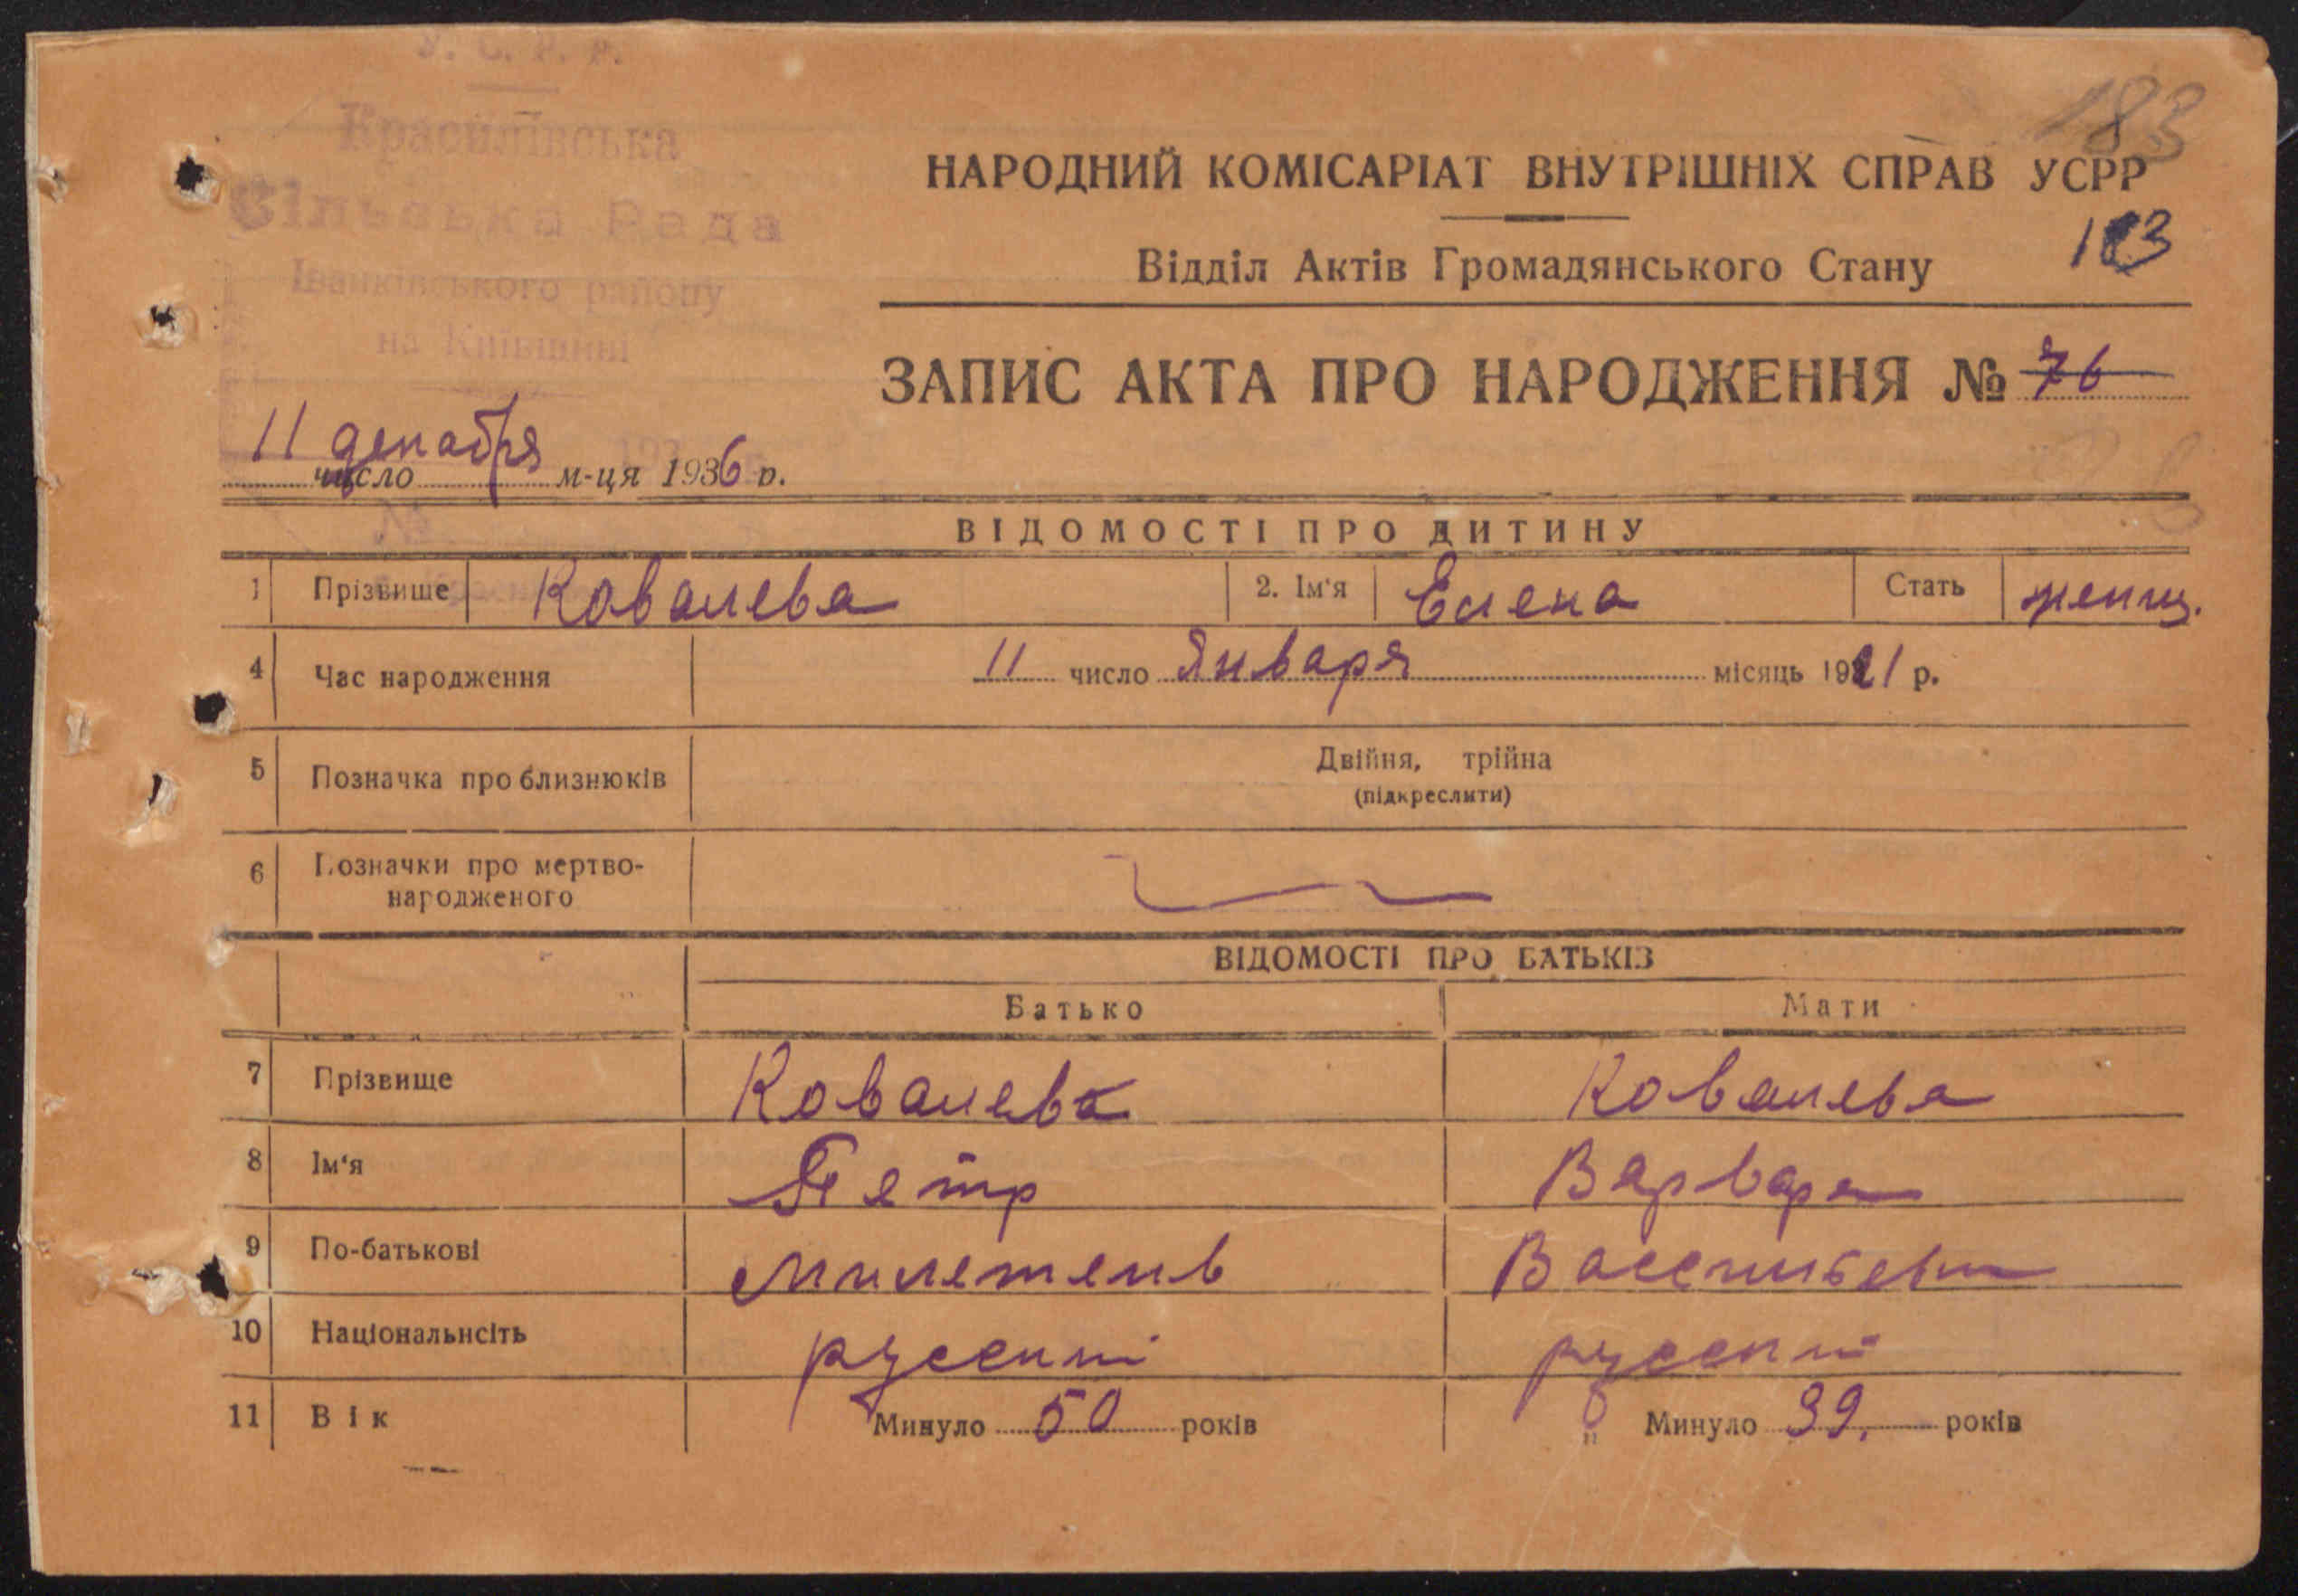 У. С. Р. Р.
Красилівська
Сільська Рада
Іванківського району
на Київщині
183
НАРОДНИЙ КОМІСАРІАТ ВНУТРІШНІХ СПРАВ УСРР
183
Відділ Актів Громадянського Стану
ЗАПИС АКТА ПРО НАРОДЖЕННЯ № 76
11 декабря
число м-ця 1936 р.
№
ВІДОМОСТІ ПРО ДИТИНУ
1 Прізвище Ковалева 2. Ім'я Елена Стать женщ.
4 Час народження 11 число Января місяць 1921 р.
5 Позначка про близнюків Двійня, трійна
(підкреслити)
6 Позначки про мертво-
народженого
ВІДОМОСТІ ПРО БАТЬКІВ
Батько Мати
7 Прізвище Ковалева Ковалева
8 Ім'я Петр Варвара
9 По-батькові
10 Національнсіть русский русский
11 Вік Минуло 50 років Минуло 39. років